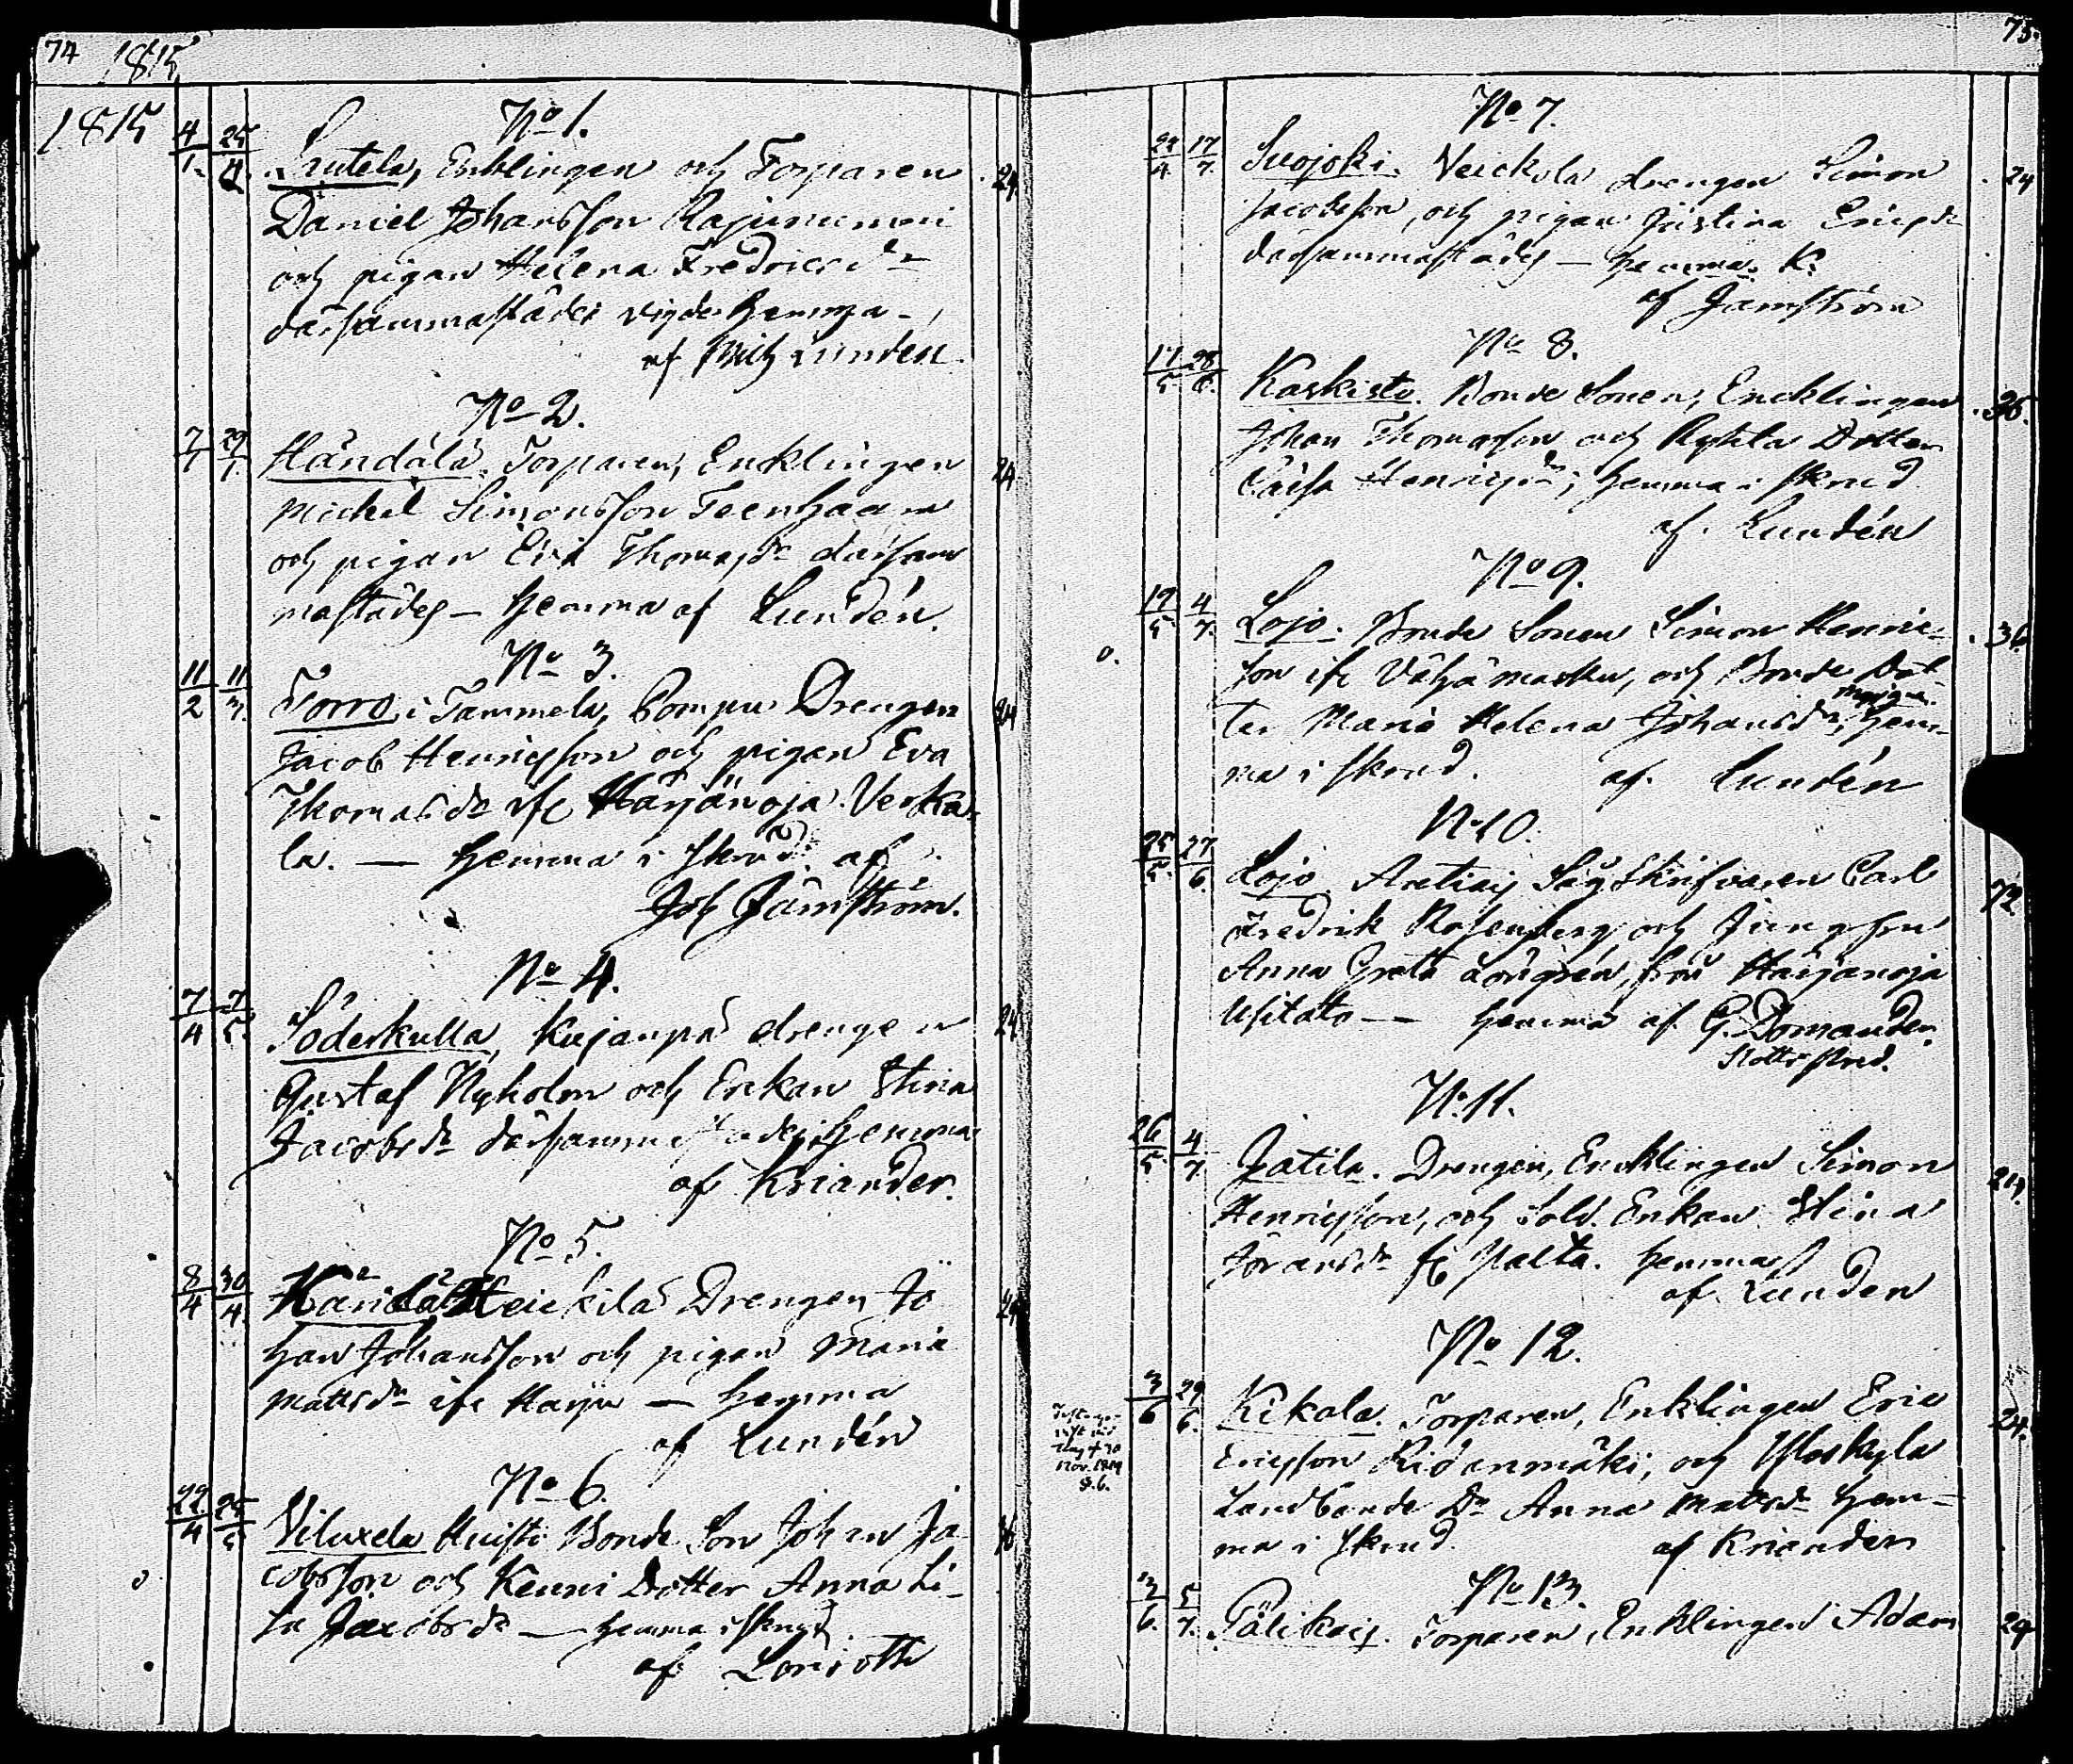 74 1815
1815
No 1.
4/1. 25/4. Lrutela, Enklingen och Torparen 24
Daniel Johansson Rajunummi
och pigan Helena Fredricsdr
därsammastädes vigde hemma
af Mich Lunden
No 2.
7/1 29/1. Händälä. Torparen, Encklingen 24
Michel Simonsson Teenhaara
och pigan Eva Thomasdr därsam
mastädes – hemma af Lundén.
No 3.
11/2 11/3. Torro i Tammela, Pompu Drengen 24
Jacob Henricsson och pigan Eva
Thomasdr ifr Harjänoja Verka-
la. — hemma i skrud. af
Joh Jämström.
No 4.
7/4 7/5. Söderkulla, Kujanpä drengen 24
Gustaf Nyholm och Enkan Stina
Jacobsdr därsammastädes, hemma
af Kriander.
No 5.
8/4 30/4. Händälä Heickilä Drengen Jo 24
han Johansson och pigan Maria
Mattsdr ifr Harju — hemma
af Lundén
No 6.
22/4 25/5 Viluxela Bonde Son Johan Ja
cobsson och Kenni Dotter Anna Li-
sa Jacobsdr — hemma i skrud.
af
75.
No 7.
24 17/7. Suojoki. Veickola drengen Simon 24
Jacobsson, och pigan Justina Ericsdr
därsammastädes – hemma. K.
af Jamström
No 8.
17/5 28/6. Kaskisto. Bonde Sonen, Encklingen 36.
Johan Thomasson och Dotter
Caisa Henricsdr, hemma i skrud
af. Lundén
No 9.
19/5. 4/7. Lojo. Bonde Sonen Simon Henric- 36.
son ifr Vähä Marku, och Bonde Dot-
ter Maria Helena Johansdr, hem-
ma i skrud. af. Lundén
N. 10.
25/5. 27/6. Lojo. Sågskrifvaren Carl 72
Fredrik Rosenberg och Jungfrun
Anna Greta från Harjanoja
hemma af G. Domander.
No 11.
26/5. 4/7. Jatila. Drengen, Encklingen Simon 24.
Henricsson, och Sold. Enkan Stina
Göransdr fr Palta. hemma
af. Lunden
No 12.
3/6 29/6. Kikala. Torparen, Enklingen Eric 24.
Ericsson och
Landbonde Dr Anna Mattsdr hem-
ma i skrud. af Kriander
No 13.
3/6. 5/7. Pälikäis. Torparen, Enklingen Adam 24